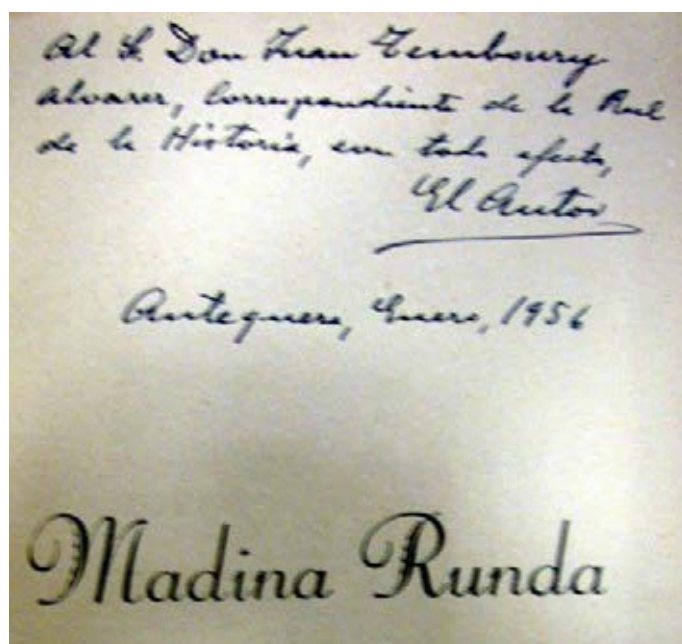 Al S. Don Juan Temboury
Alvarez, Correspondiente de la Real
de la Historia, con todo afecto,
El Autor
Antequera, Enero, 1956
Madina Runda